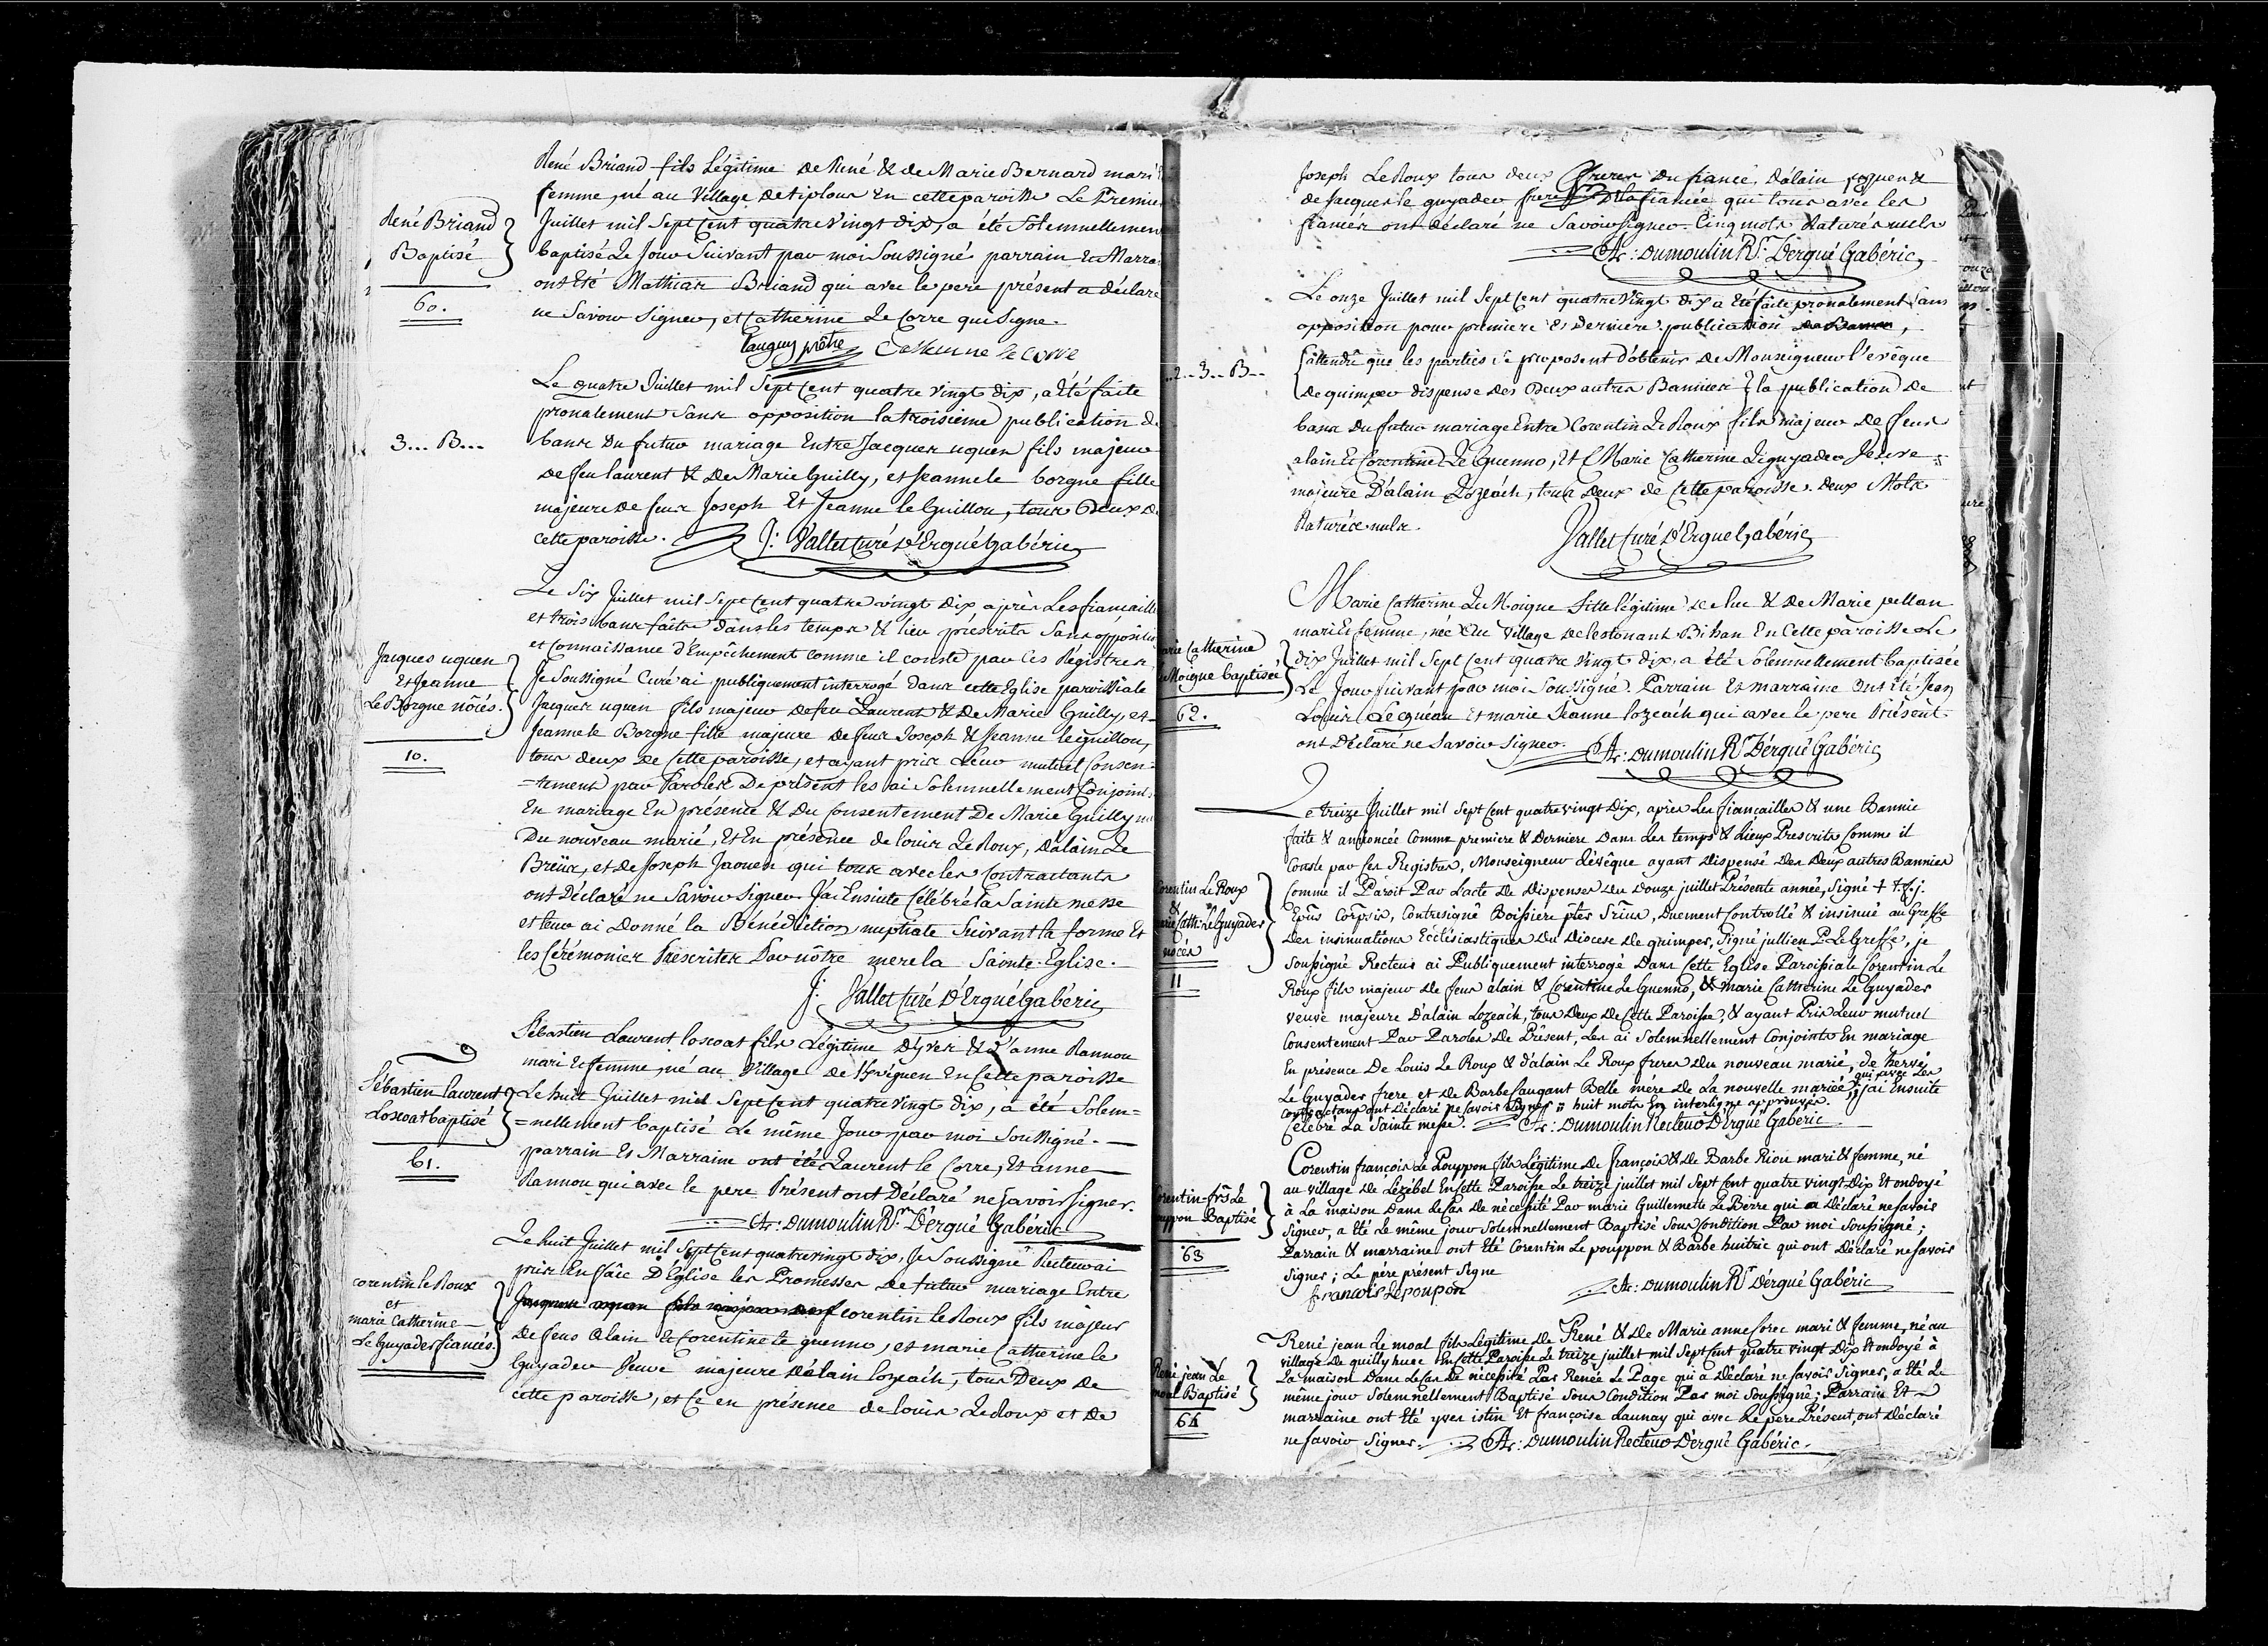 René Briand fils Légitime de René & de Marie Bernard mari
femme, né au Village de tiplous En cette paroisse Le Premier
René Briand
Baptisé
60.
Juillet mil Sept Cent quatre vingt dix, a été Solemnellement
baptisé Le Jour Suivant par moi Soussigné parrain Et Marrai
ont Eté Mathias Briand qui avec le pere présent a déclaré
ne Savoir Signer, et Catherine Le Corre qui Signe.
Tanguy prêtre Catherine le corre
Le quatre Juillet mil Sept Cent quatre vingt dix, a été faite
pronalement Sans opposition la troisieme publication de
3... B...
bans du futur mariage Entre Jacques uguen fils majeur
de feu laurent & de Marie Guilly, et Jeanne le borgne fille
majeure de feux Joseph Et Jeanne le Guillou, tous Deux de
cette paroisse. J: Vallet Curé d'Ergué Gabéric
Le Six Juillet mil Sept Cent quatre vingt dix après Les fiancaille
et trois bans faite dans les temps & lieu préscrits Sans oppositi
et Connaissance d'Empêchement comme il conste par les Régistres,
Jacques uguen
Et Jeanne
Le Borgne nôcés.
10.
Je Soussigné Curé ai publiquement interrogé dans cette Eglise paroissiale
Jacques uguen fils majeur de feu Laurent & de Marie Guilly, et
Jeanne le Borgne fille majeure de feux Joseph & Jeanne le guillou,
tous deux de Cette paroisse, et ayant pris Leur mutuel Consen-
=tement par Paroles De présent les ai Solemnellement Conjoint
En mariage En présence & Du Consentement De Marie Guilly
Du nouveau marié, Et En présence de louis Le Roux, d'alain Le
Breüs, et de Joseph Jaouen qui tous avec les Contractants
ont Déclaré ne Savoir Signer. J'ai Ensuite Célébré la Sainte messe
et leur ai Donné la Bénédiction nuptiale Suivant la forme Et
les Cérémonies Préscrites Par nôtre mere la Sainte Eglise.
J: Vallet Curé d'Ergué Gabéric
Sébastien Laurent loscoat fils Légitime d'yves & d'anne Rannou
mari Et femme, né au Village de En Cette paroisse
Sébastien laurent
Loscoat baptisé
61.
Le huit Juillet mil Sept Cent quatre vingt dix, a été Solem=
=nellement baptisé Le même Jour par moi Soussigné.
parrain Et Marraine ont été Laurent le Corre, Et anne
Rannou qui avec le pere Présent ont Déclaré ne Savoir Signer.
At: Dumoulin Rr. D'ergué Gabéric
Le huit Juillet mil Sept Cent quatre vingt dix, Je Soussigné Recteur ai
pris En fâce D'Eglise les Promesses de futur mariage Entre
corentin le Roux
et
marie Catherine
Le Guyader fiancés.
Jacques uguen fils majeur de f corentin le Roux fils majeur
De feus Alain Et Corentine le guenno, et marie Catherine le
Guyader Veuve majeure D'alain lozeach, tous Deux de
cette paroisse, et Ce en présence de louis Le Roux et de
Joseph Le Roux tous deux freres du fiancé, d'alain
de Jacques le guyader frere De la fiancée qui tous avec les
fiancés ont déclaré ne Savoir Signer. Cinq mots Raturés nuls
At: Dumoulin Rr. D'ergué Gabéric
Le onze Juillet mil Sept Cent quatre Vingt dix a été faite pronalement Sans
opposition pour premiere Et derniere publication
2..3..B..
attendu que les parties Se proposent d'obtenir de Monseigneur l'evêque
de quimper dispense des Deux autres Bannies la publication de
bans du futur mariage Entre Corentin Le Roux fils majeur de feus
alain Et Corentine Le Guenno, Et Marie Catherine Le guyader Veuve
majeure D'alain Lozeach, tous Deux de Cette paroisse. Deux Mots
Raturés nuls.
Vallet Curé d'Ergue Gabéric
Marie Catherine Le Moigne fille légitime de luc & de Marie pellan
mari Et femme, née Au Village de lestonant Bihan En Cette paroisse Le
arie Catherine
Moigne baptisée
62.
dix Juillet mil Sept Cent quatre Vingt dix, a été Solemnellement baptisée
Le Jour Suivant par moi Soussigné. Parrain Et marraine Ont été Jean
Louis Le quéau Et marie Jeanne lozeach qui avec le pere Présent
ont Déclaré ne Savoir Signer. At: Dumoulin Rr D'érgué Gabéric
Le treize Juillet mil Sept Cent quatre vingt Dix, après Les fiançailles & une Bannie
faite & annoncée Comme premiere & Derniere Dans Les temps & Lieux Prescrits Comme il
Conste par les Registres, Monseigneur L'évêque ayant Dispensé Des Deux autres Bannies
orentin Le Roux
&
arie Cath: Le Guyader
nôcés
11
Comme il Paroit Par L'acte De Dispenses Du Douze juillet Présente année, Signé + t.f.j.
Epūs Corpsis, Contresigné Boissiere ptēr Srius, Duement Controllé & insinué au Greffe
Des insinuations Ecclésiastiques Du Diocese De quimper, Signé jullien P. Le Greffe, je
Soussigné Recteur ai Publiquement interrogé Dans Cette Eglise Paroissiale Corentin Le
Roux fils majeur De feus alain & Corentine Le Guenno, & marie Catherine Le Guyader
veuve majeure D'alain Lozeach, tous Deux De Cette Paroisse, & ayant Pris Leur mutuel
Consentement Par Paroles De Présent, Les ai Solemnellement Conjoints En mariage
En présence De Louis Le Roux & d'alain Le Roux freres Du nouveau marié, de hervé
Le Guyader frere et de Barbe Laugant Belle mére De La nouvelle mariée, qui avec Les
contractans ont Déclaré ne Savoir Signer huit mots En interligne approuvés. j'ai Ensuite
Célébré La Sainte messe. At: Dumoulin Recteur D'ergué Gabéric
Corentin françois Le Pouppon fils Légitime De françois & De Barbe Riou mari & femme, né
au village De Lézébel En Cette Paroisse Le treize juillet mil Sept Cent quatre vingt Dix Et ondoyé
à La maison Dans Le Cas De nécessité Par marie Guillemette Le Berre qui a Déclaré ne Savoir
orentin frs Le
uppon Baptisé
63
Signer, a été Le même jour Solemnellement Baptisé Sous Condition Par moi Soussigné;
Parrain & marraine ont Eté Corentin Le pouppon & Barbe huitric qui ont Déclaré ne Savoir
Signer; Le pére présent Signe
françois Le poupon At: Dumoulin Rr D'érgué Gabéric
René jean Le moal fils Légitime De René & De Marie anne Corec mari & femme, né au
village De quillyhuec En Cette Paroisse Le treize juillet mil Sept Cent quatre vingt Dix Et ondoyé à
René jean Le
moal Baptisé
64
La maison Dans Le Cas De nécessité Par Renée Le Page qui a Déclaré ne Savoir Signer, a été Le
même jour Solemnellement Baptisé Sous Condition Par moi Soussigné; Parrain Et
marraine ont Eté yves istin Et françoise Launay qui avec Le pere Présent, ont Déclaré
ne Savoir Signer. At: Dumoulin Recteur D'ergué Gabéric.